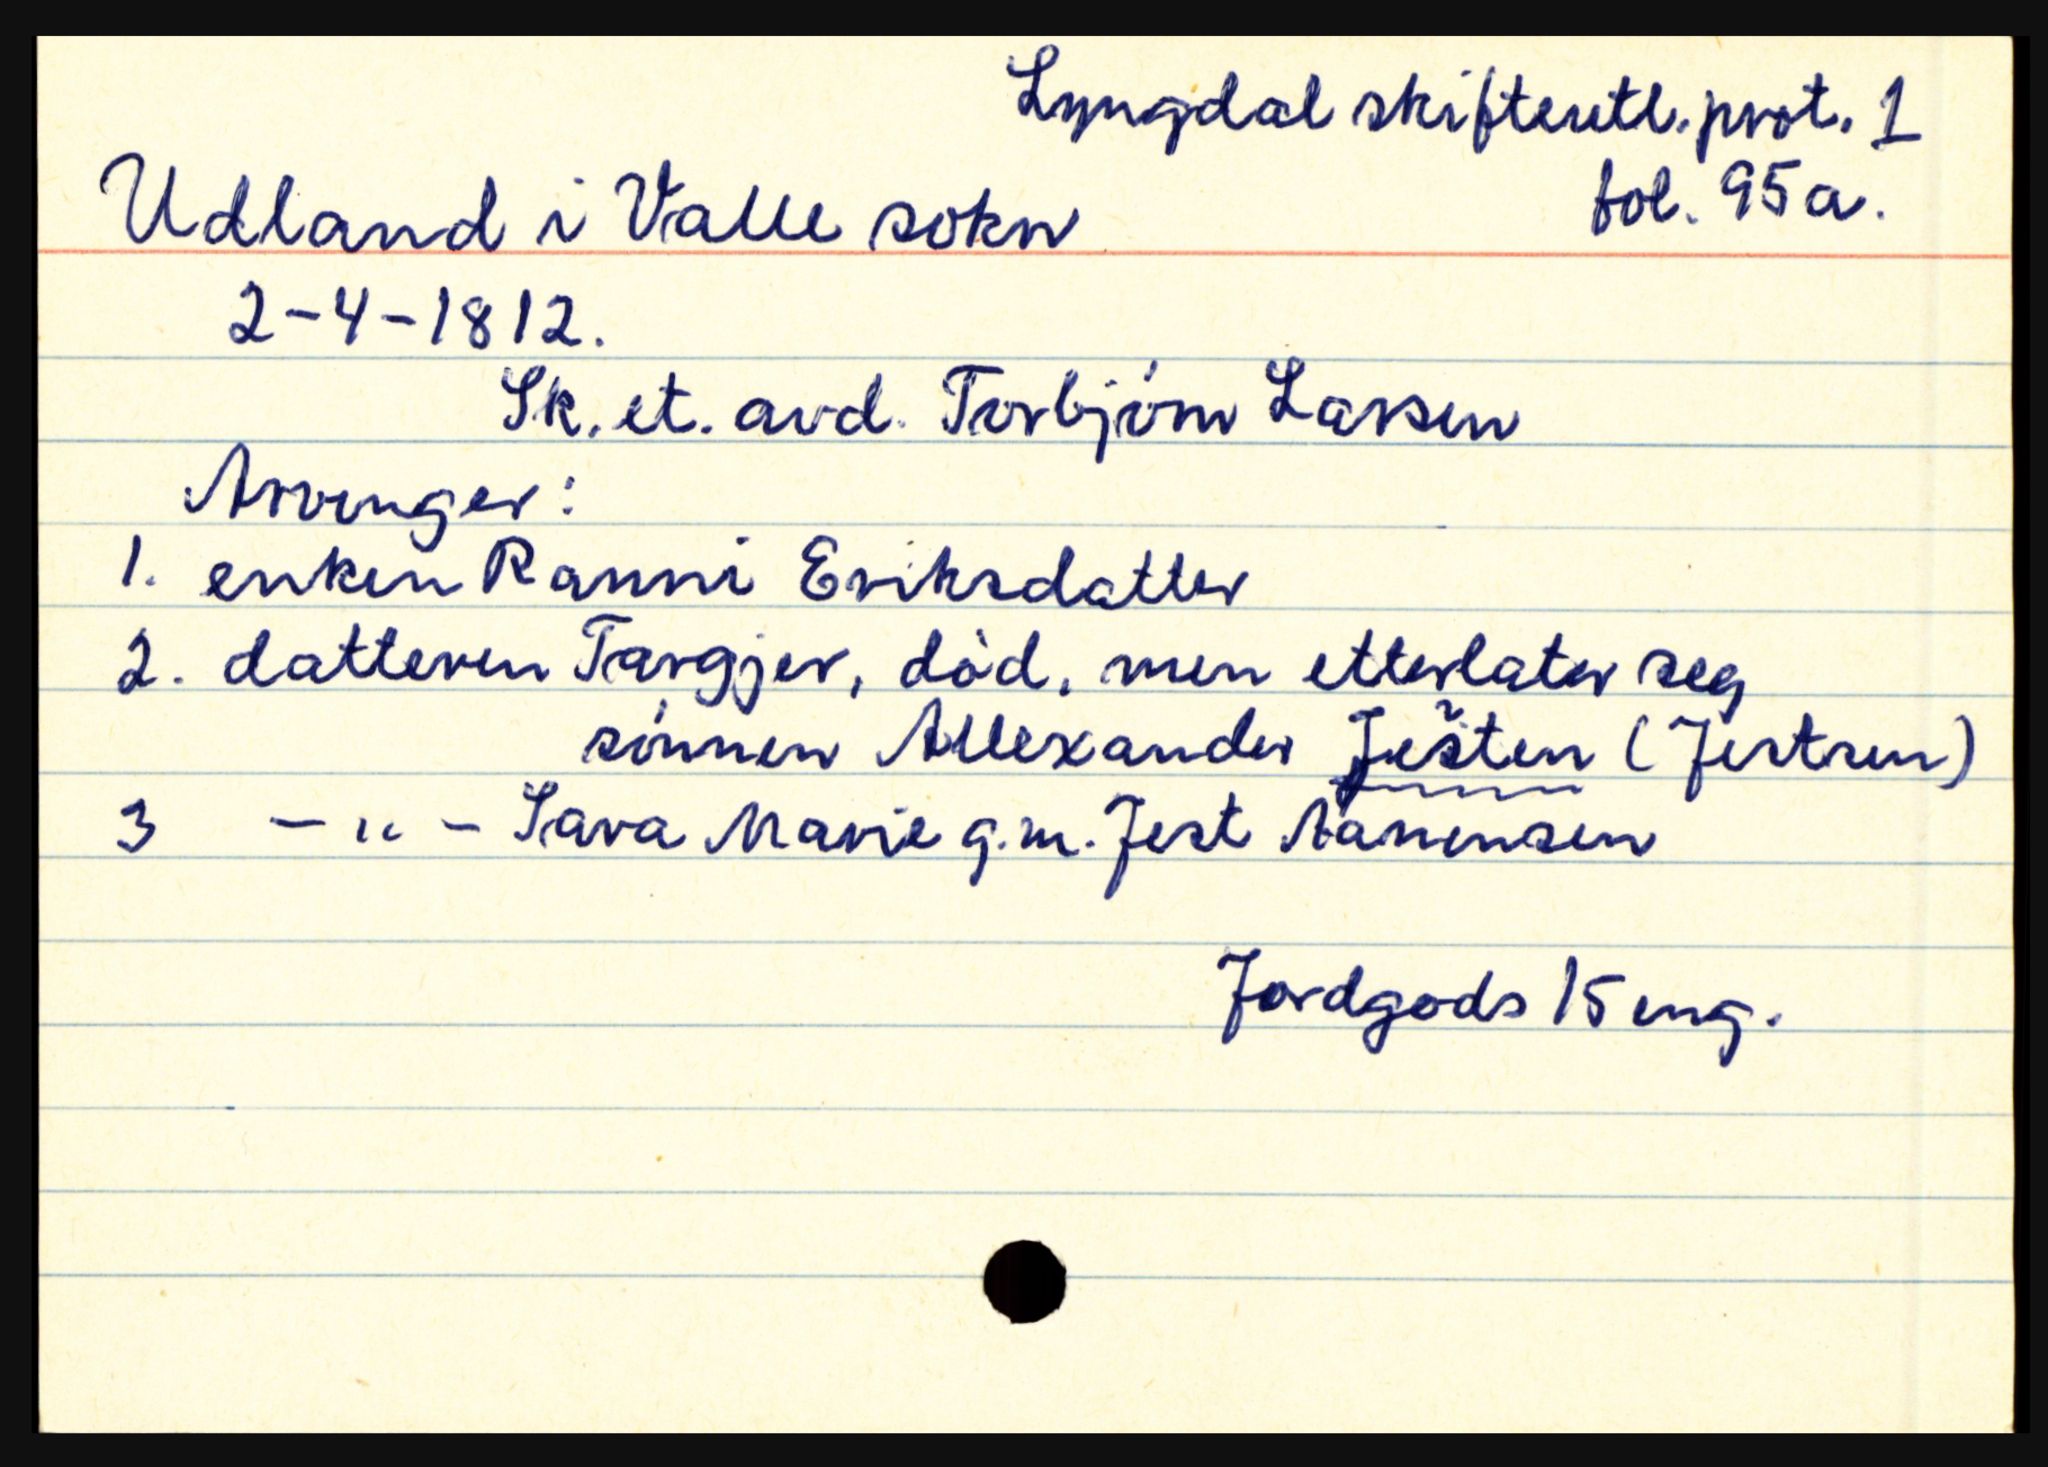 Lyngdal skifteutl. prot. 1
fol. 95a.
Udland i Valle sokn
2-4-1812.
Sk. et. avd. Torbjörn Larsen
Arvinger:
1. enken Ranni Eriksdatter
2. datteren Targjer, död, men etterlater seg
sönnen Allexander Jesten (Jertsen)
3 - " - Sara Marie g.m. Jest Aanensen
Jordgods 15 eng.